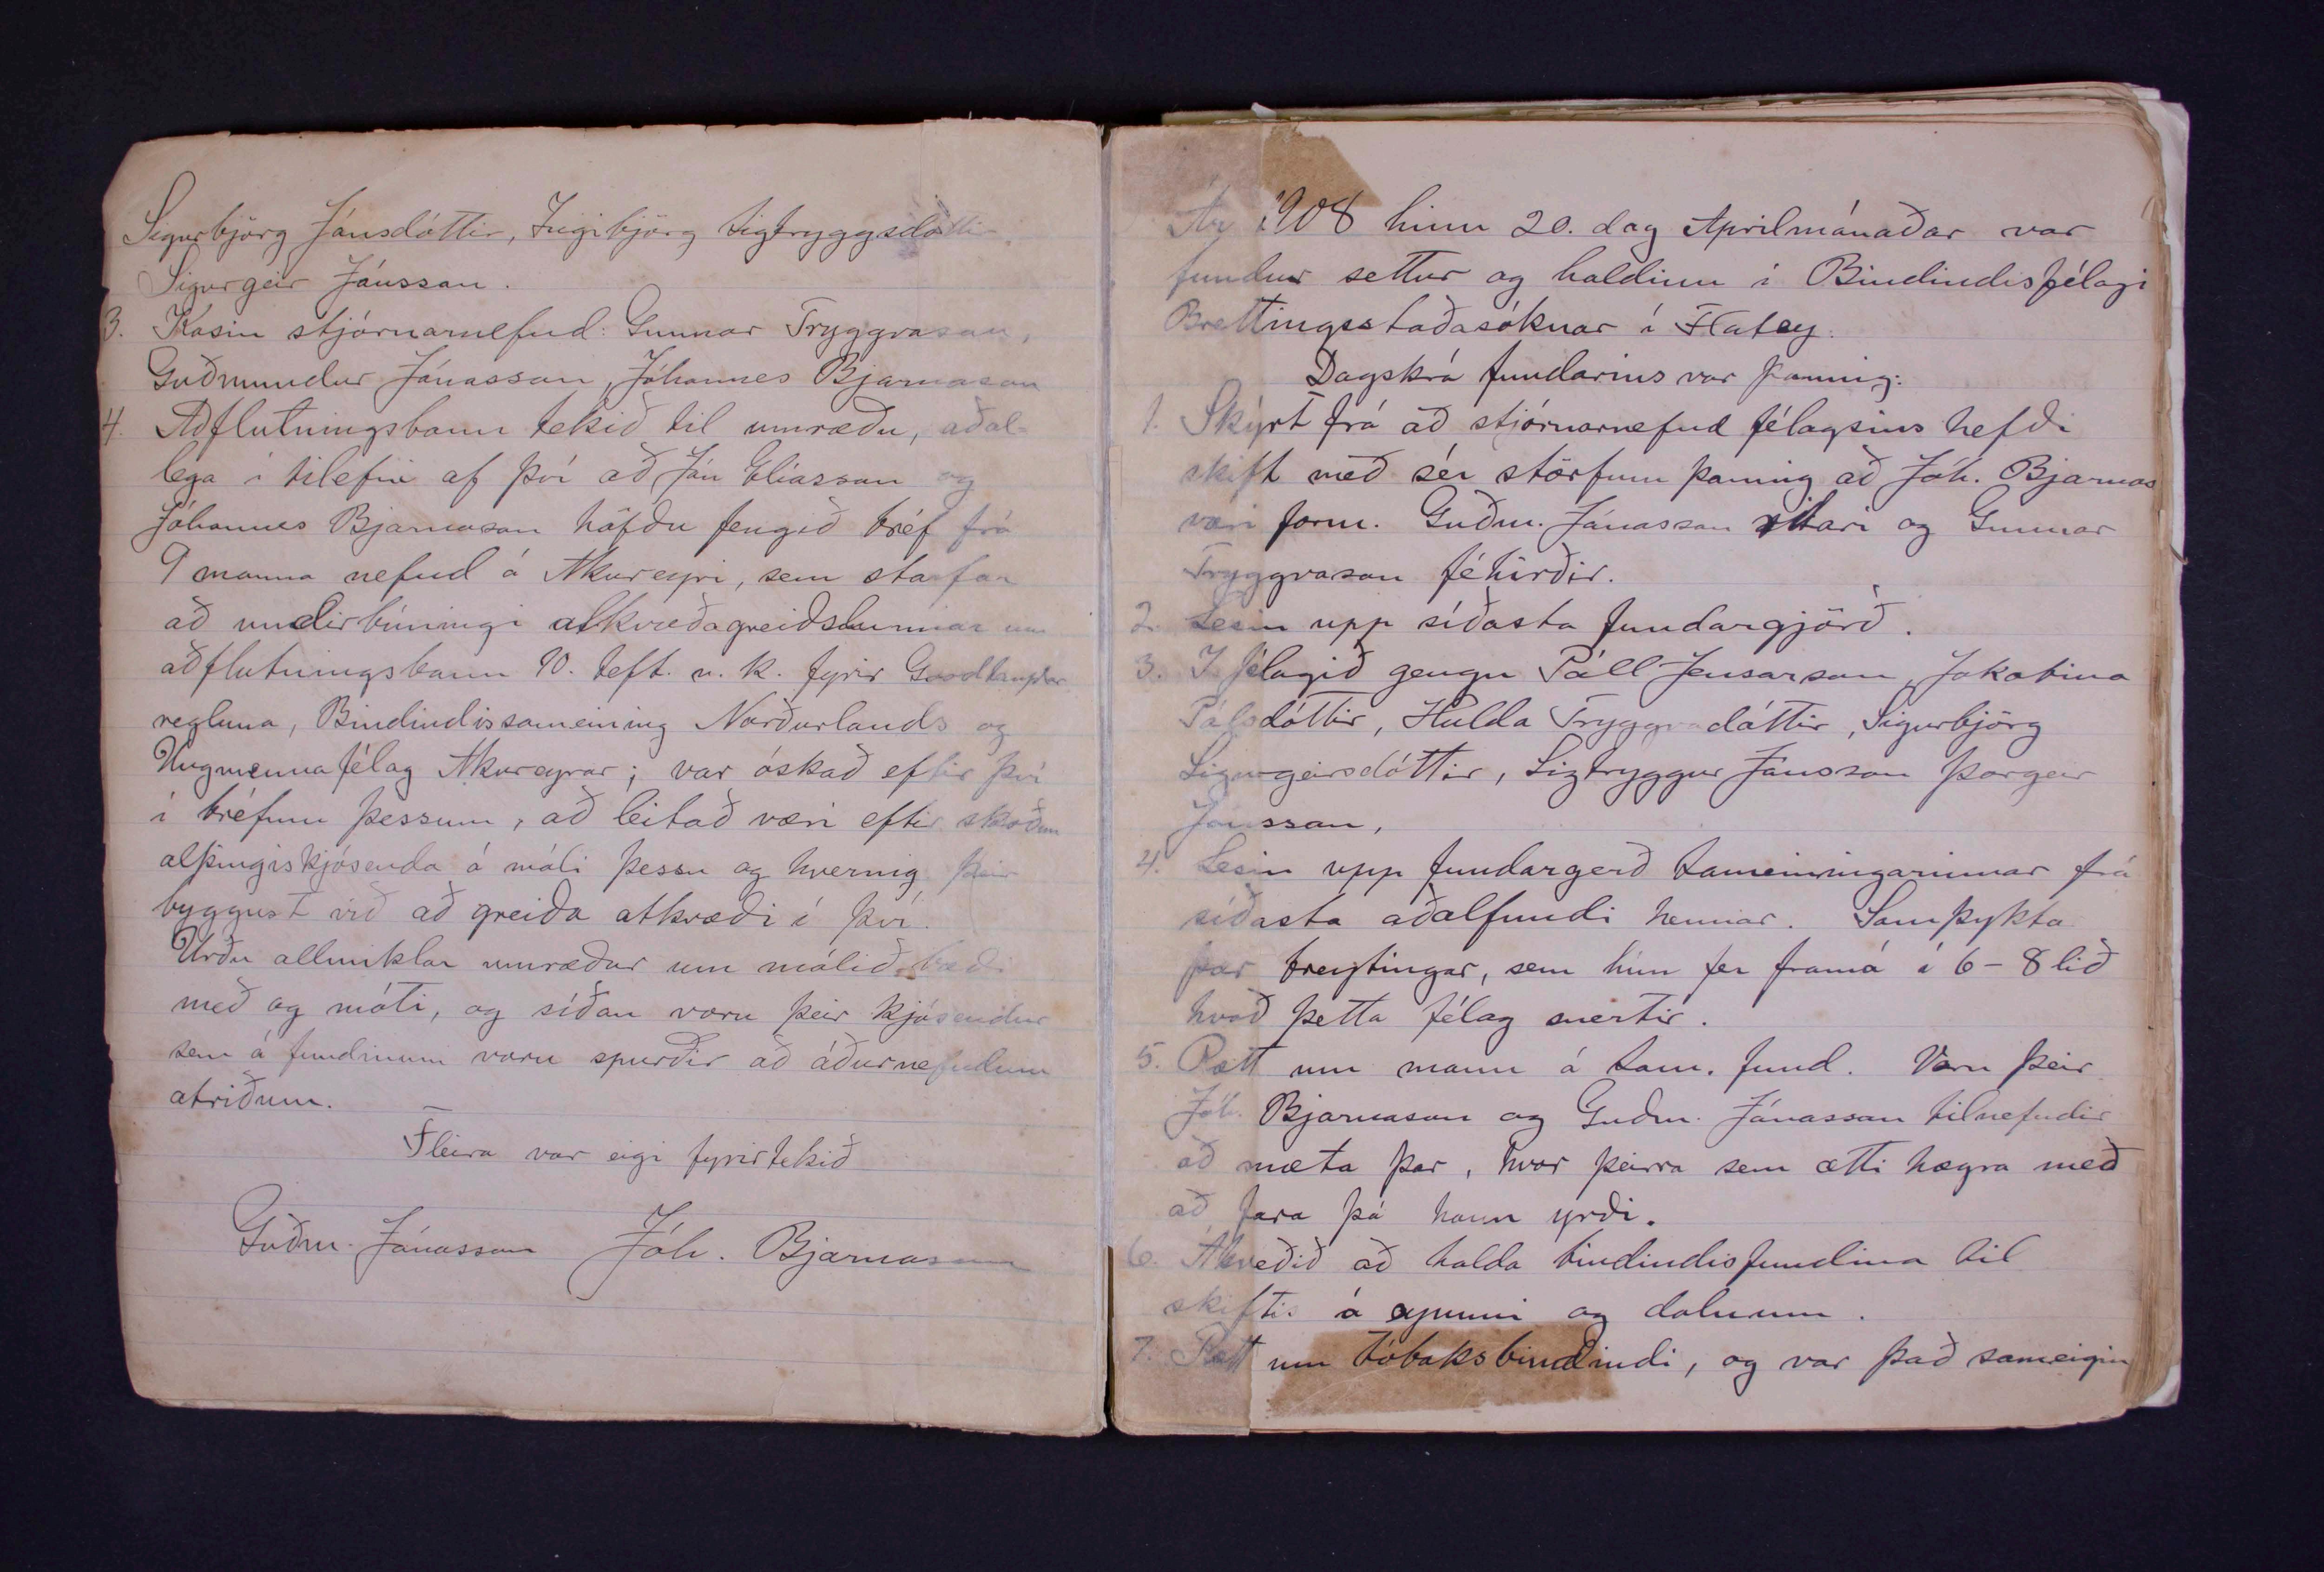 Sigurbjörg Jónsdóttir, Ingibjörg Sigtryggsdóttir,
Sigurgeir Jónsson.
3. Kosin stjórnarnefnd: Gunnar Tryggvason,
Guðmundur Jónasson, Jóhannes Bjarnason
4. Aðflutningsbann tekið til umræðu, aðal-
lega í tilefni af því að Jón Elíasson og
Jóhannes Bjarnason höfðu fengið bréf frá
9 manna nefnd á Akureyri, sem starfar
að undirbúningi atkvæðagreiðslunnar um
aðflutningsbann 10. sept. n. k. fyrir Goodtemplar
regluna, Bindindissameining Norðurlands og
Ungmennafélag Akureyrar; var óskað eftir því
í bréfum þessum, að leitað væri eftir skoðun
alþingiskjósenda á máli þessu og hvernig þeir
byggust við að greiða atkvæði í því.
Urðu allmiklar umræður um málið, bæði
með og móti, og síðan voru þeir kjósendur
sem á fundinum voru spurðir að áðurnefndum
atriðum.
Fleira var eigi fyrirtekið
Guðm. Jónasson Jóh. Bjarnason
Ár 1908 hinn 20. dag Aprilmánaðar var
fundur settur og haldinn í Bindindisfélagi
Brettingsstaðasóknar í Flatey.
Dagskrá fundarins var þannig:
1. Skýrt frá að stjórnarnefnd félagsins hefði
skift með sér störfum þannig að Jóh. Bjarnas
væri form. Guðm. Jónasson ritari og Gunnar
Tryggvason féhirðir.
2. Lesin upp síðasta fundargjörð.
3. Í félagið gengu Páll Jensarson, Jakobína
Pálsdóttir, Hulda Tryggvadóttir, Sigurbjörg
Sigurgeirsdóttir, Sigtryggur Jónsson Þorgeir
Jónsson,
4. Lesin upp fundargerð Sameiningarinnar frá
síðasta aðalfundi hennar. Samþykta
þær breytingar, sem hún fer framá í 6-8 lið
hvað þetta félag snertir.
5. Rætt um mann á Sam. fund. Voru þeir
Jóh. Bjarnason og Guðm. Jónasson tilnefndir
að mæta þar, hvor þeirra sem ætti hægra með
að fara þá hann yrði.
6. Ákveðið að halda bindindisfundina til
skiftis á eyunni og dalnum.
7. Rætt um tóbaksbindindi, og var það sameigin